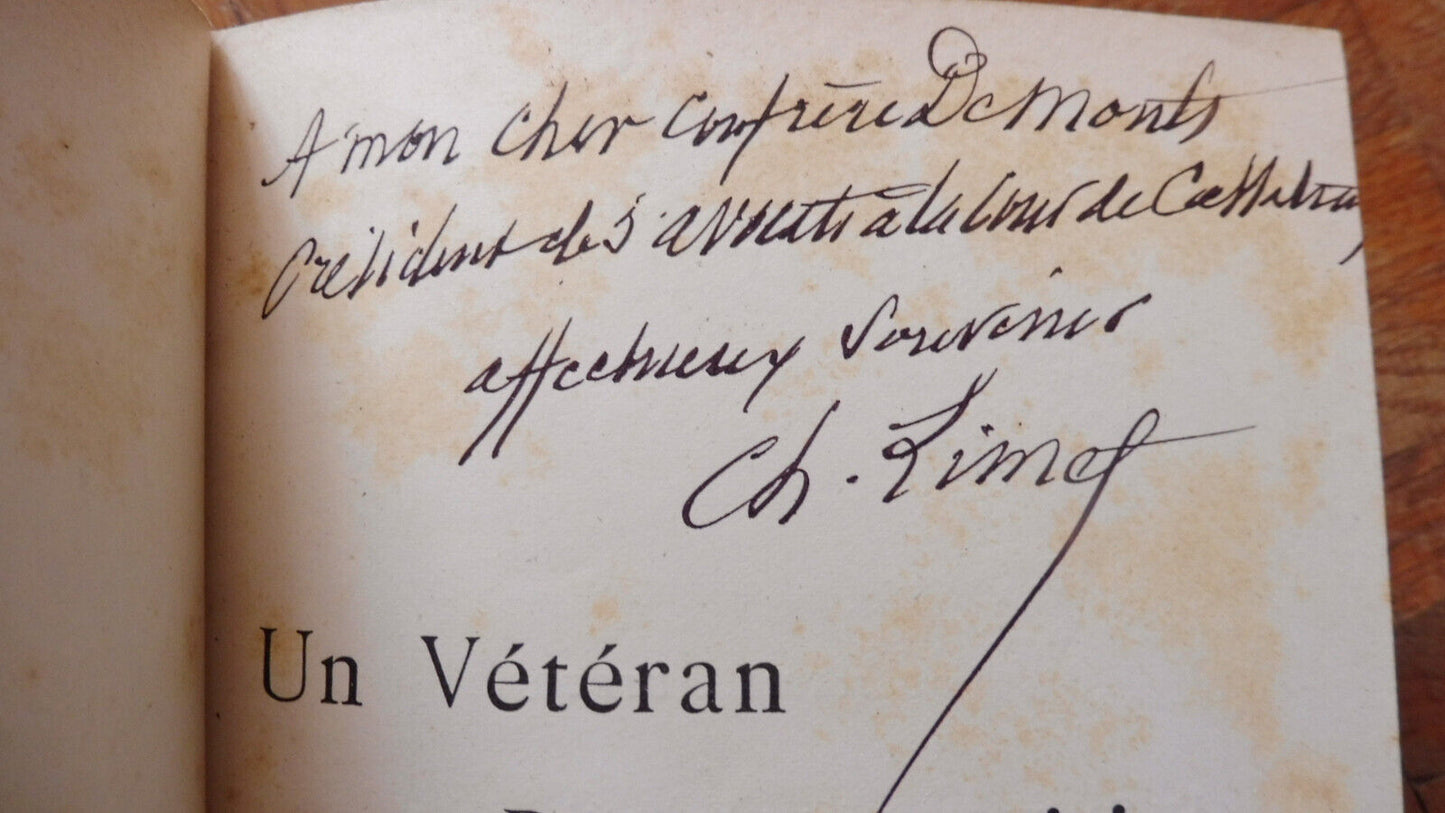 A mon cher confrère De Monts
Président des avocats à la Cour de Cassation
affectueux souvenir
Ch. Limet
Un Vétéran